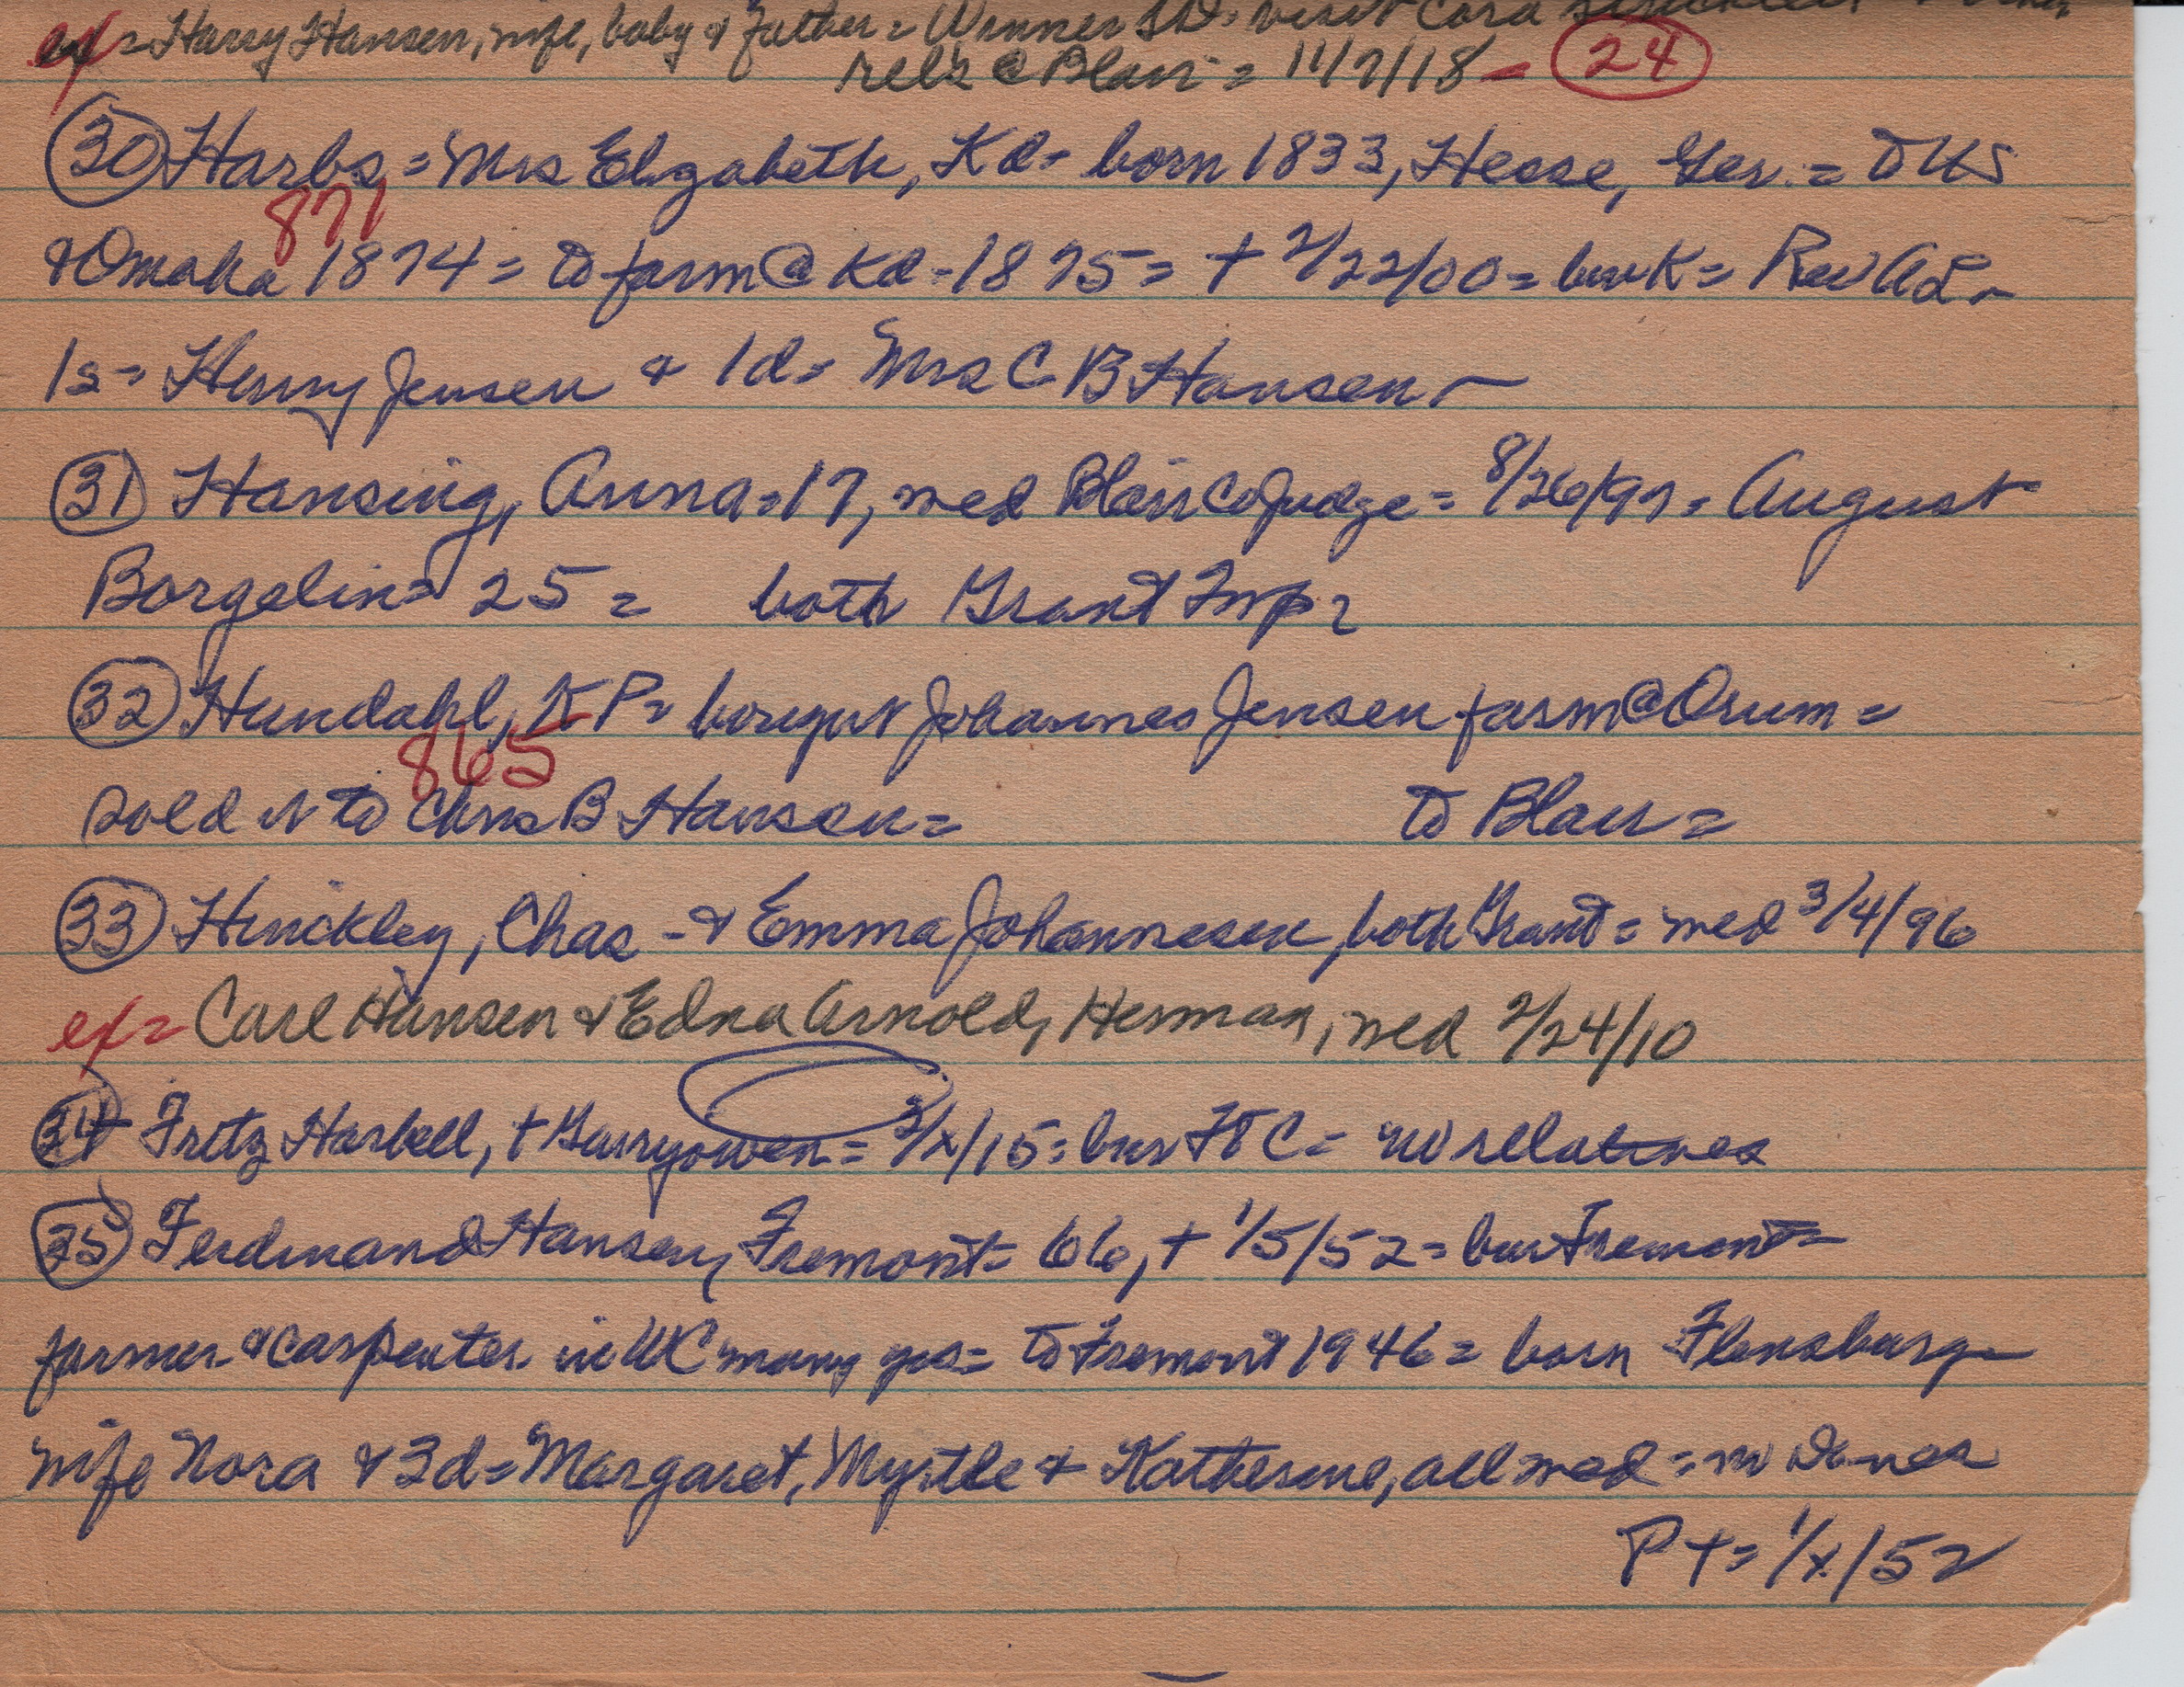 ex = Harry Hansen, wife, baby & father = Winner SD = visit Cora
rel's @ Blair = 11/7/18 - 24
30 Harbs = Mrs Elizabeth, Kd = born 1833, Hesse, Ger. = to US
871
& Omaha 1874 = to farm @ Kd - 1875 = + 2/22/00 = bur K = Rev AL -
1s = Henry Jensen & 1d = Mrs C B Hansen -
31 Hansing, Anna = 17, med Blair Co Judge = 8/26/97 = August
Borgelin = 25 = both Grant Twp =
32 Hundahl, K P = bought Johannes Jensen farm @ Orum =
865
sold it to Chris B Hansen = to Blair =
33 Hinckley, Chas - & Emma Johannesen, both Grant = med 3/4/96
ex = Carl Hansen & Edna Arnold, Herman, med 2/24/10
34 Fritz Harbell, + Garryowen = 3/x/15 = bur Ft C = no relatives
35 Ferdinand Hansen, Fremont = 66, + 1/5/52 = bur Fremont =
farmer & carpenter in WC many yrs = to Fremont 1946 = born Flensburg -
wife Nora & 3d = Margaret, Myrtle & Katherine, all med =
P T = 1/x/52